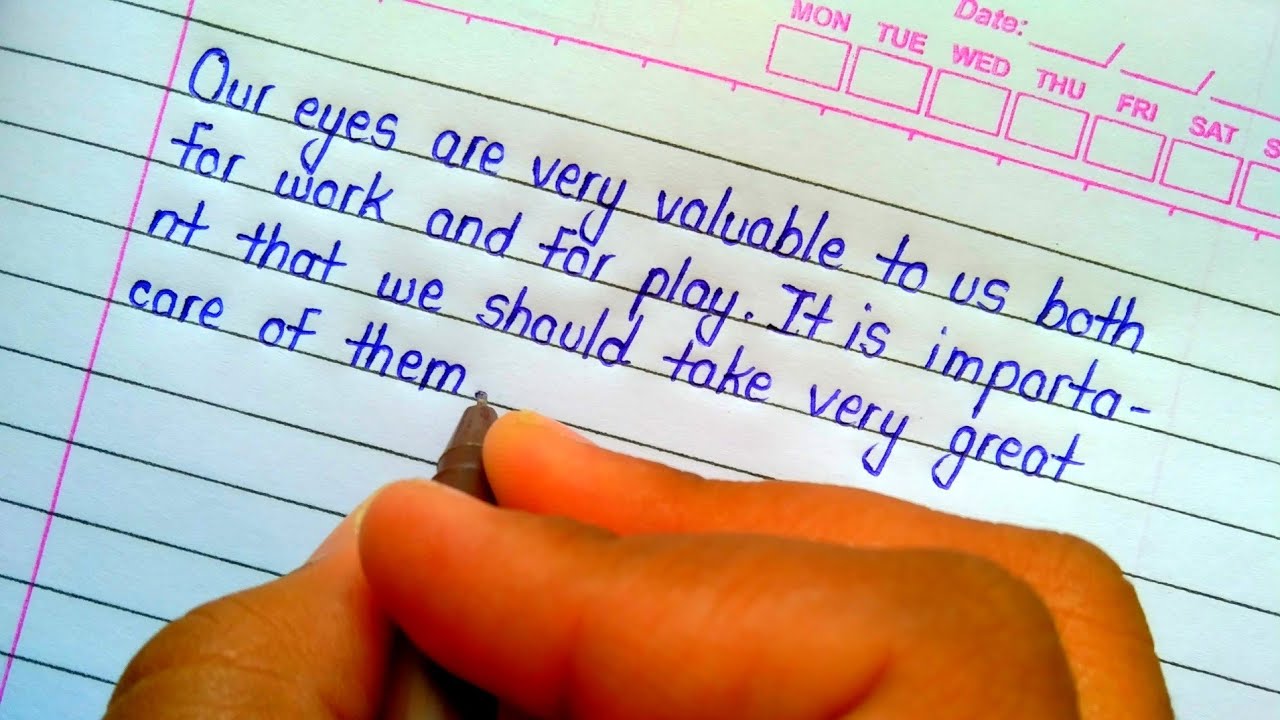 Date: __/__/__
MON TUE WED THU FRI SAT S
Our eyes are very valuable to us both
for work and for play. It is importa-
nt that we should take very great
care of them.